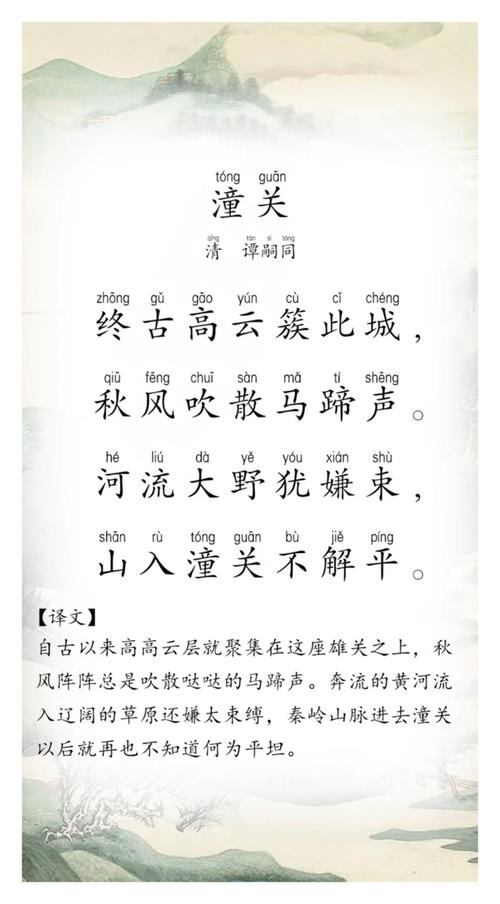 tóng guān
潼关
qīng tán sì tóng
清 谭嗣同
zhōng gǔ gāo yún cù cǐ chéng
终古高云簇此城，
qiū fēng chuī sàn mǎ tí shēng
秋风吹散马蹄声。
hé liú dà yě yóu xián shù
河流大野犹嫌束，
shān rù tóng guān bù jiě píng
山入潼关不解平。
【译文】
自古以来高高云层就聚集在这座雄关之上，秋
风阵阵总是吹散哒哒的马蹄声。奔流的黄河流
入辽阔的草原还嫌太束缚，秦岭山脉进去潼关
以后就再也不知道何为平坦。